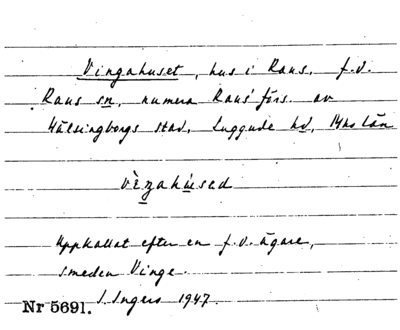 Vingahuset, hus i Raus, f.d.
Raus sn, numera Raus' förs. av
Hälsingborgs stad, Luggude hd, Mhs län
vèŋahùsəd
Uppkallat efter en f.d. ägare,
smeden Vinge.
I. Ingers 1947.
Nr 5691.